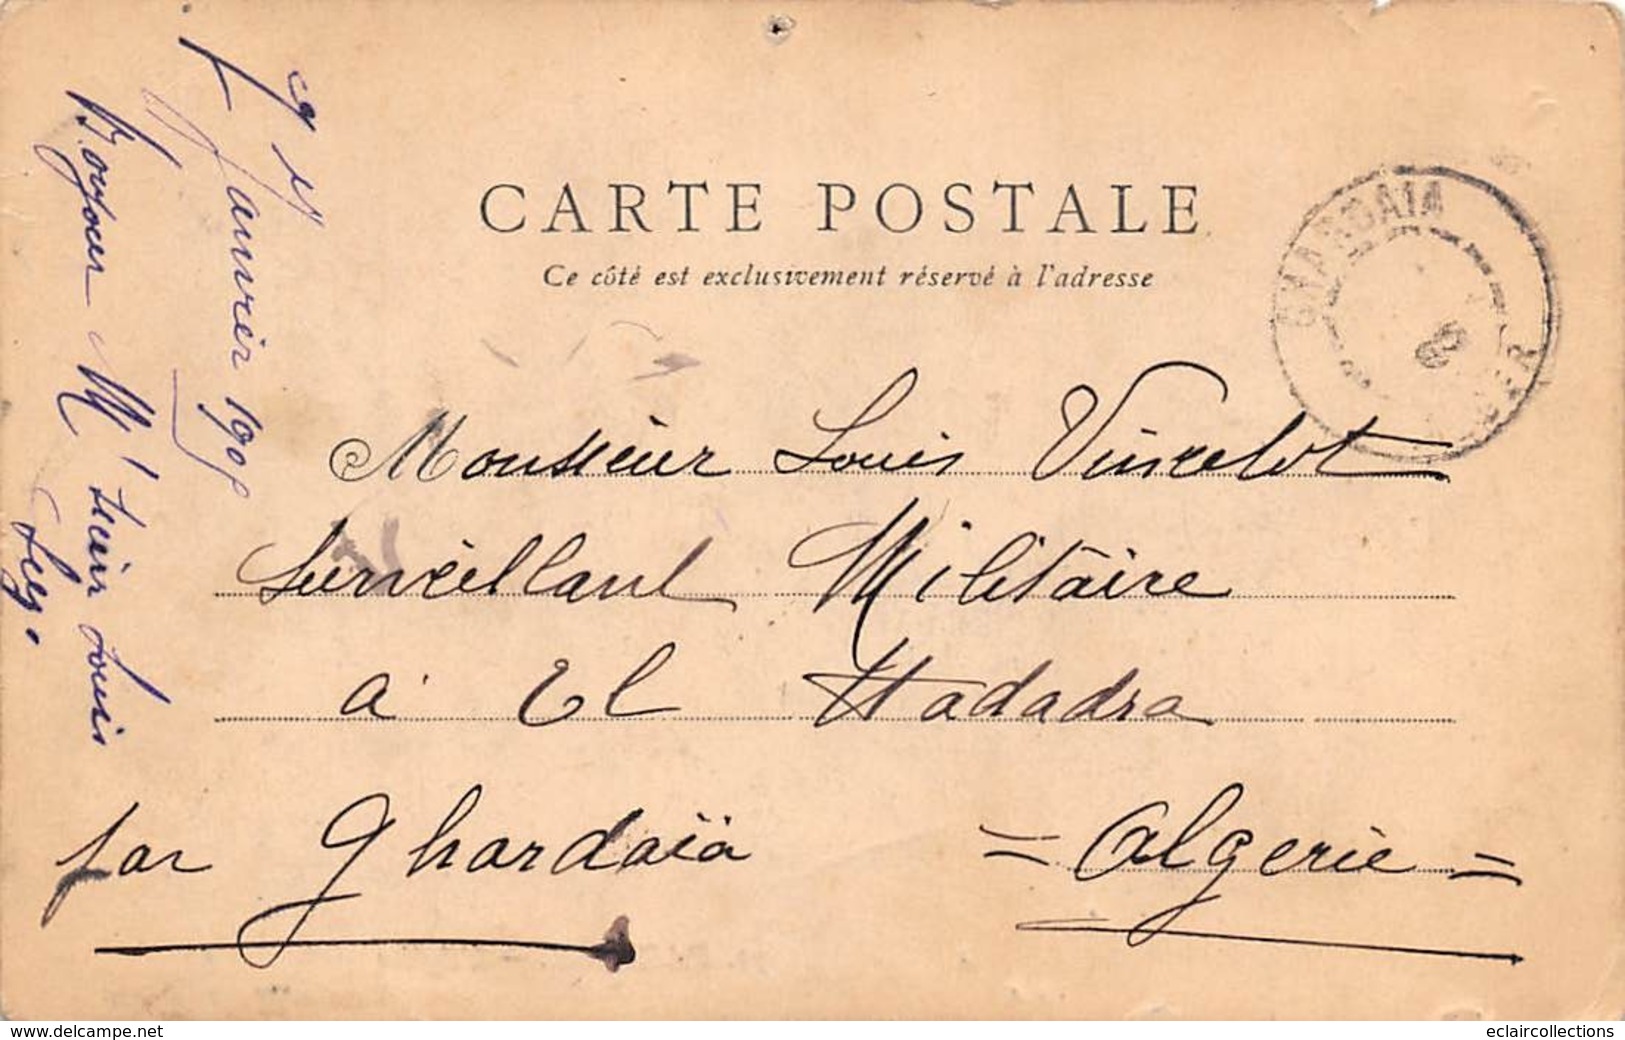 CARTE POSTALE
Ce côté est exclusivement réservé à l'adresse
GHARDAIA
Monsieur Louis Vincelot
Surveillant Militaire
à El Hadadra
par Ghardaïa = Algerie =
Janvier 190
Louis
www.delcampe.net
eclaircollections